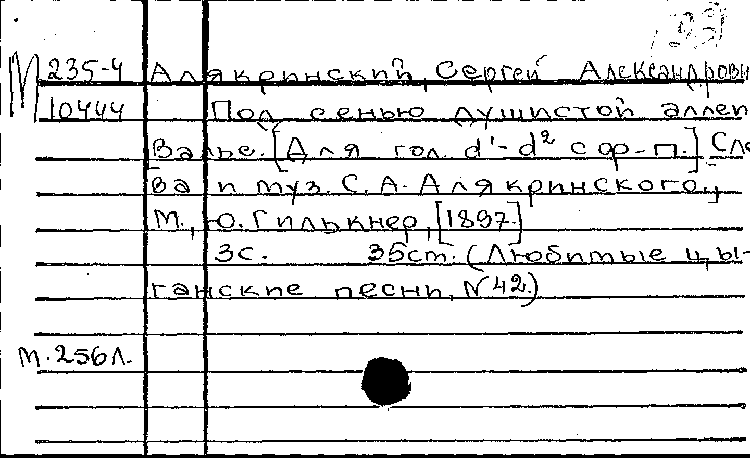 99
М 235-4 Алякринский, Сергей Александрови
10444 Под сенью душистой аллеи
Вальс. [Для гол. d¹-d² с ф-п.] Сло
ва и муз. С. А. Алякринского.,
М., Ю. Гилькнер, [1897.]
3с. 35ст. (Любимые цы-
ганские песни, N 42.)
М. 256л.